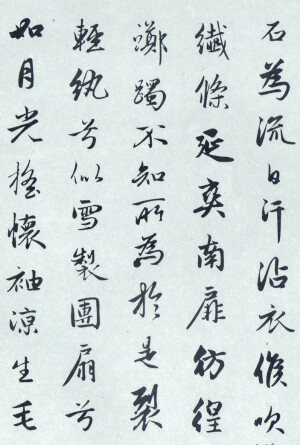 石為流日汗沾衣候吹
纖條延爽南扉彷徨
躑躅不知所為於是裂
輕紈兮似雪製團扇兮
如月光搖懷袖涼生毛